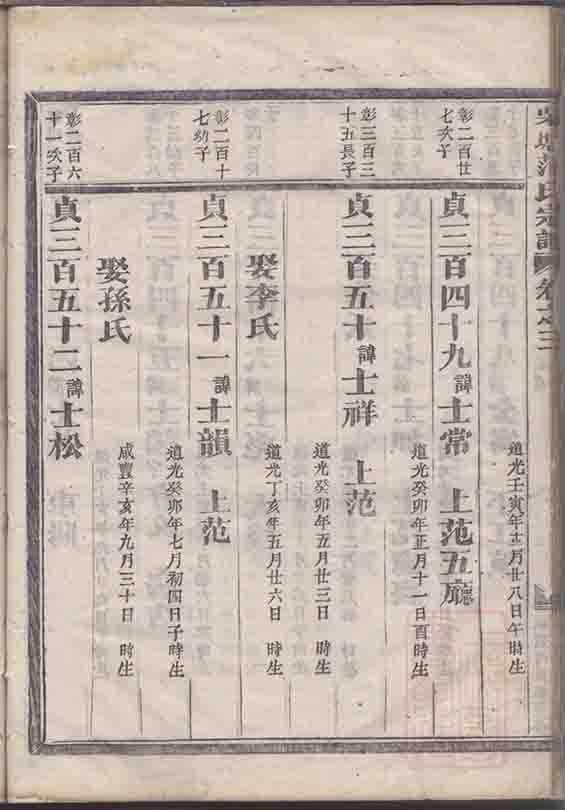 氏宗譜 卷之三
道光壬寅年十二月廿八日午時生
彰二百廿
七次子
貞三百四十九 諱士常 上范五廳
道光癸卯年正月十一日酉時生
彰三百三
十五長子
貞三百五十 諱士祥 上范
道光癸卯年五月廿三日 時生
娶李氏
道光丁亥年五月廿六日 時生
彰二百十
七幼子
貞三百五十一 諱士韻 上范
道光癸卯年七月初四日子時生
娶孫氏
咸豐辛亥年九月三十日 時生
彰二百六
十一次子
貞三百五十二 諱士松